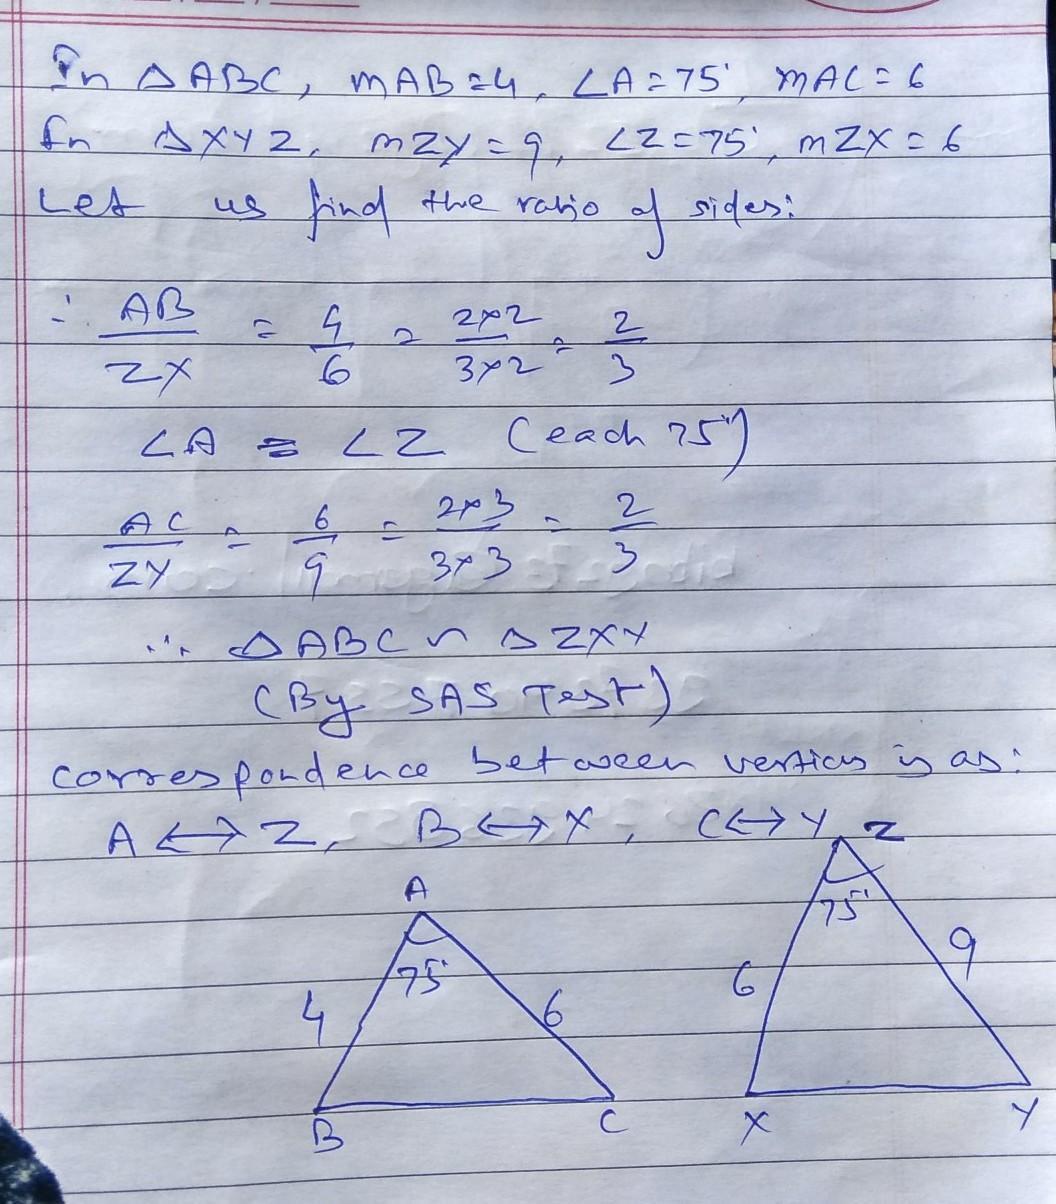 In △ABC, mAB=4, ∠A=75°, mAC=6
In △XYZ, mZY=9, ∠Z=75°, mZX=6
Let us find the ratio of sides:
∴ AB/ZX = 4/6 = 2×2/3×2 = 2/3
∠A = ∠Z (each 75°)
AC/ZY = 6/9 = 2×3/3×3 = 2/3
∴ △ABC ~ △ZXY
(By SAS Test)
correspondence between vertics is as:
A↔Z, B↔X, C↔Y
A
75°
4
6
B
C
Z
75°
6
9
X
Y